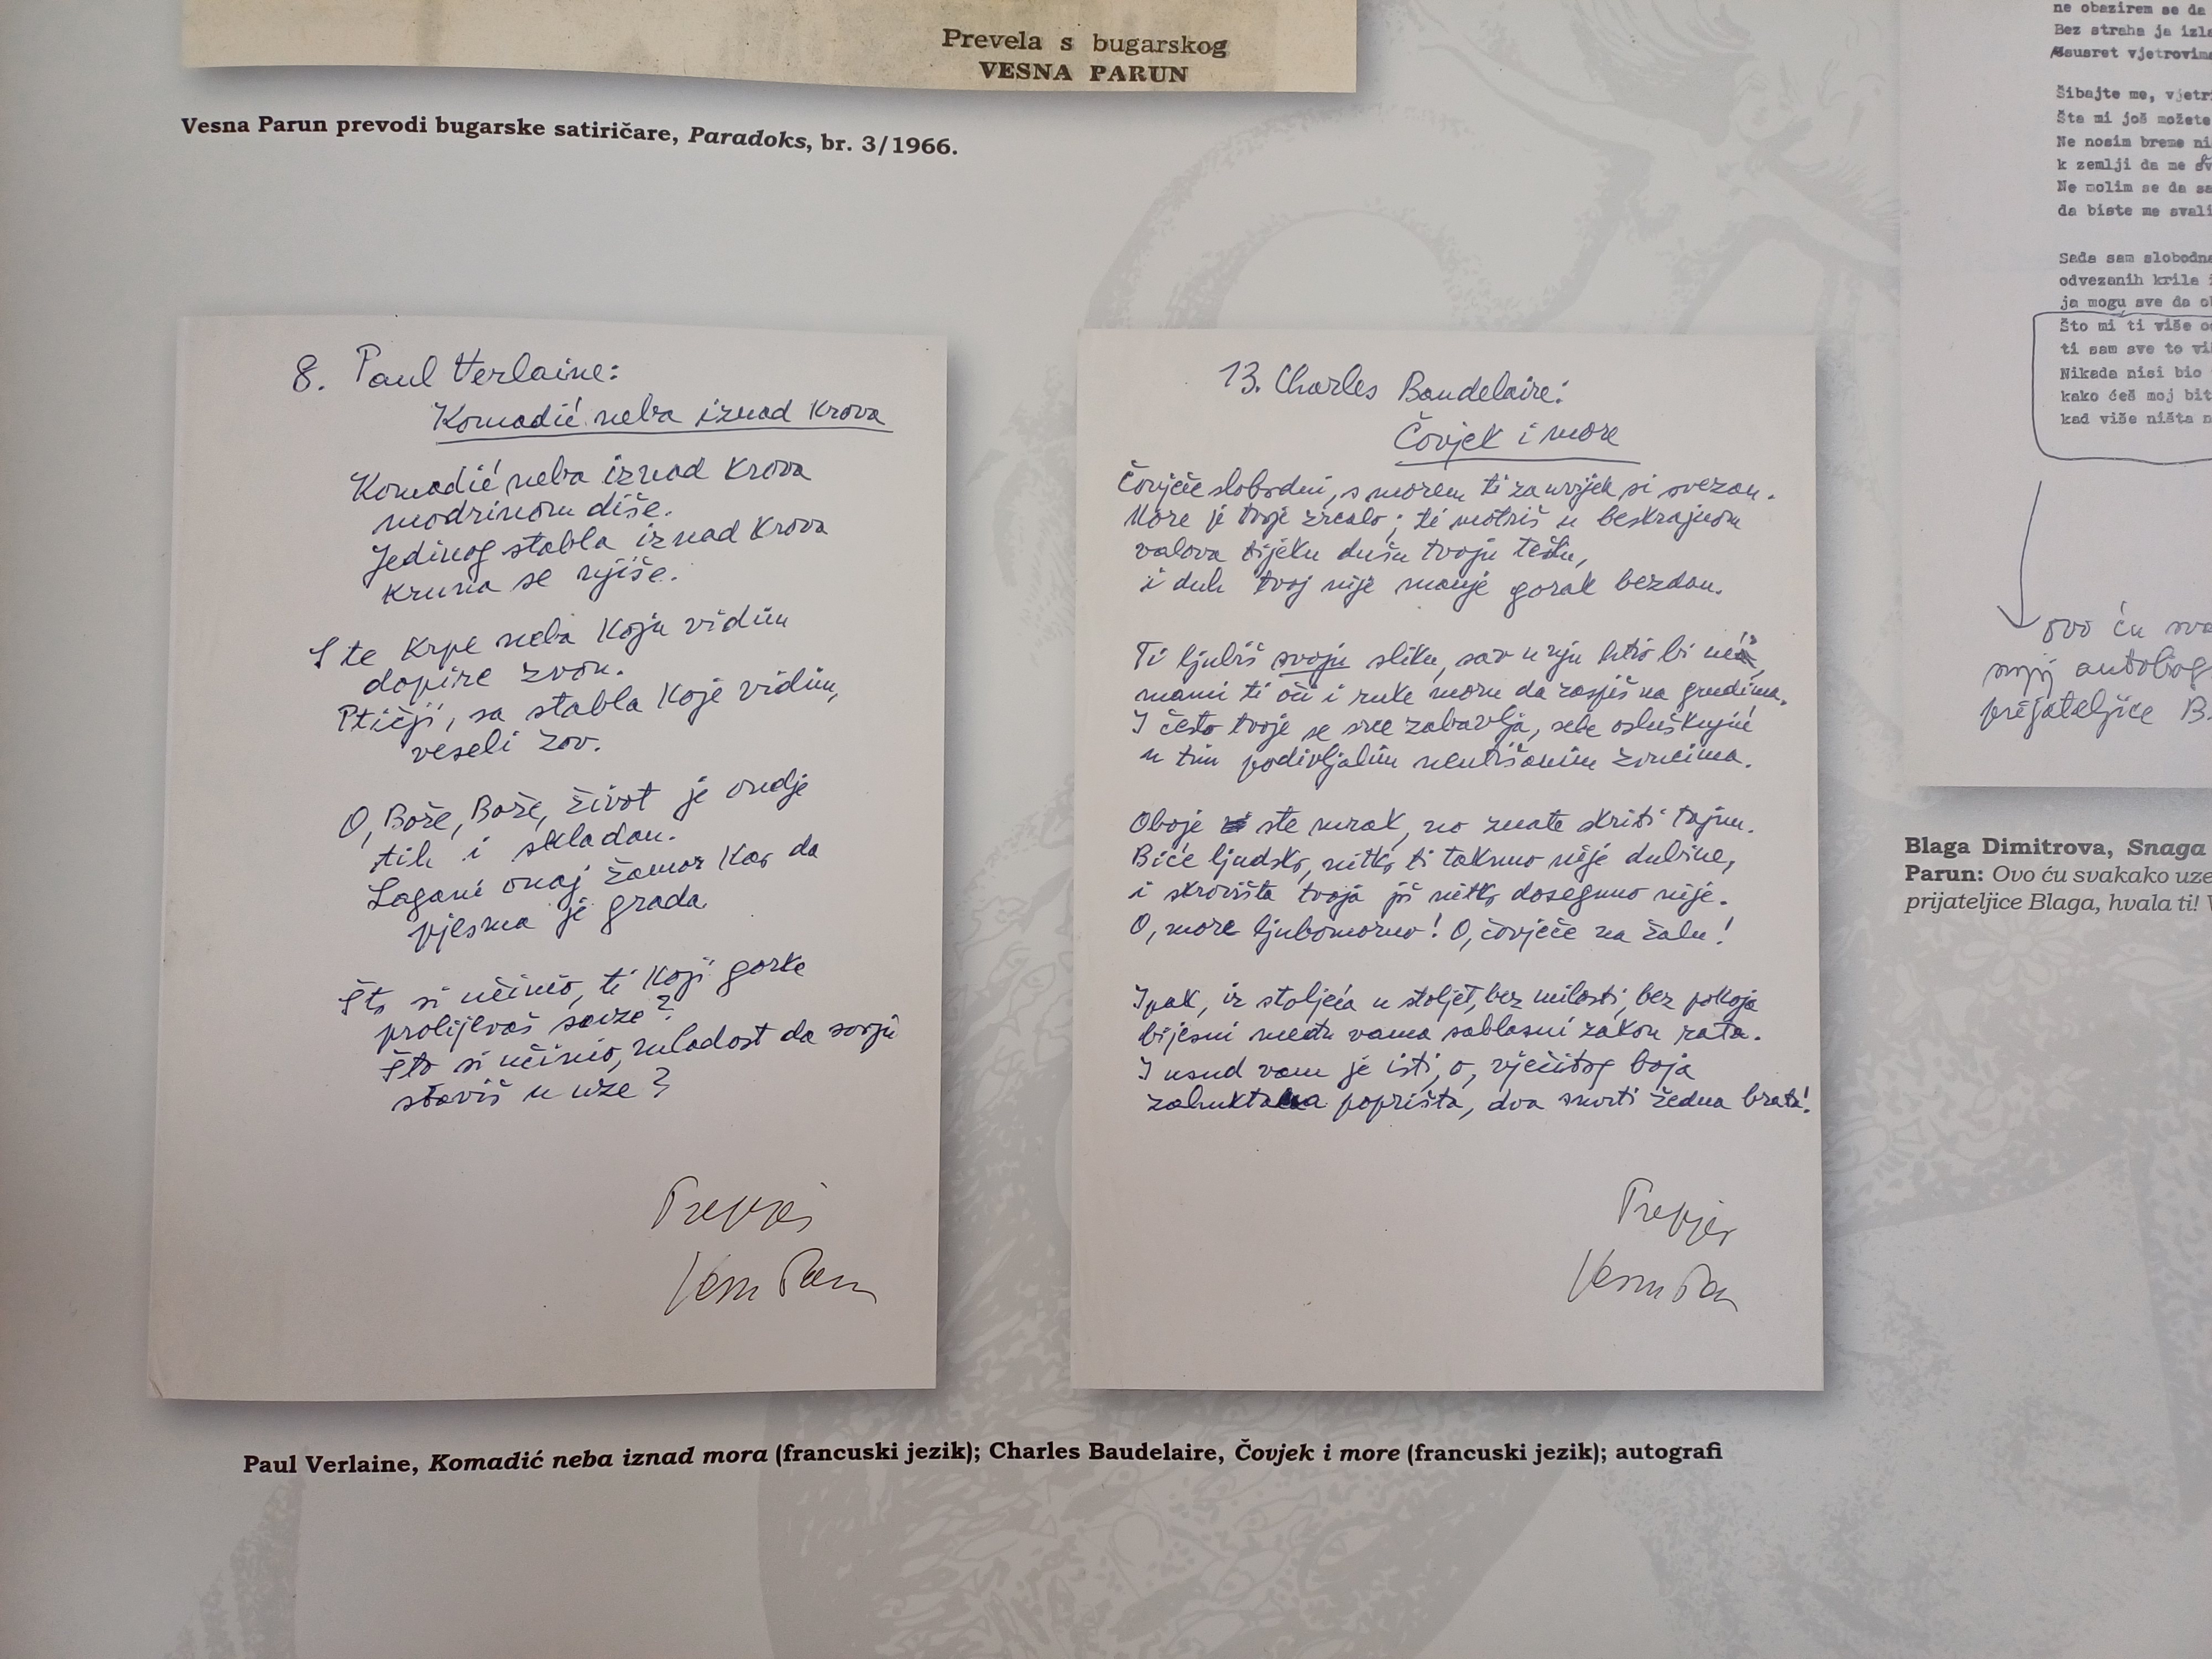 Prevela s bugarskog
VESNA PARUN
Vesna Parun prevodi bugarske satiričare, Paradoks, br. 3/1966.
8. Paul Verlaine:
Komadić neba iznad krova
Komadić neba iznad krova
modrinom diše.
Jedinog stabla iznad krova
kruna se njiše.
S te krpe neba koju vidim
dopire zvon.
Ptičji, sa stabla koje vidim,
veseli zov.
O, Bože, Bože, život je ondje
tih i skladan.
Lagani onaj žamor kao da
pjesma je grada
Što si učinio, ti koji gorke
prolijevaš suze?
Što si učinio, mladost da svoju
staviš u uze?
Prepjev
Vesna Parun
13. Charles Baudelaire:
Čovjek i more
Čovječe slobodni, s morem ti zauvijek si svezan.
More je tvoje zrcalo; ti motriš u beskrajnom
valova tijeku dušu tvoju
i duh tvoj nije manje gorak bezdan.
Ti ljubiš svoju sliku, sav u nju htio bi
mami ti oči i ruke moru da raspeš na grudima.
I često tvoje se srce zabavlja, sebe osluškujuć
u tim podivljalim neutišanim zvucima.
Oboje ste mrak, no znate skriti tajnu.
Biće ljudsko, nitko ti taknuo nije dubine,
i skrovišta tvoja još nitko dosegnuo nije.
O, more ljubomorno! O, čovječe na žalu!
Ipak, iz stoljeća u stoljeće, bez milosti, bez pokoja
bijesni među vama sablasni zakon rata.
I usud vam je isti, o, vječitog boja
zahuktala poprišta, dva smrti žedna brata!
Prepjev
Vesna Parun
Paul Verlaine, Komadić neba iznad mora (francuski jezik); Charles Baudelaire, Čovjek i more (francuski jezik); autografi
ne obazirem se da
Bez straha ja
ususret
Šibajte me,
Šta mi još možete
Ne nosim breme
k zemlji da me
Ne molim se da
da biste me
Sada sam slobodna
odvezanih krila
ja mogu sve da
Što mi ti više
ti sam sve to
Nikada nisi bio
kako ćeš moj
kad više ništa
ovo ću
svojoj
prijateljice B.
Blaga Dimitrova, Snaga
Parun: Ovo ću svakako
prijateljice Blaga, hvala ti!